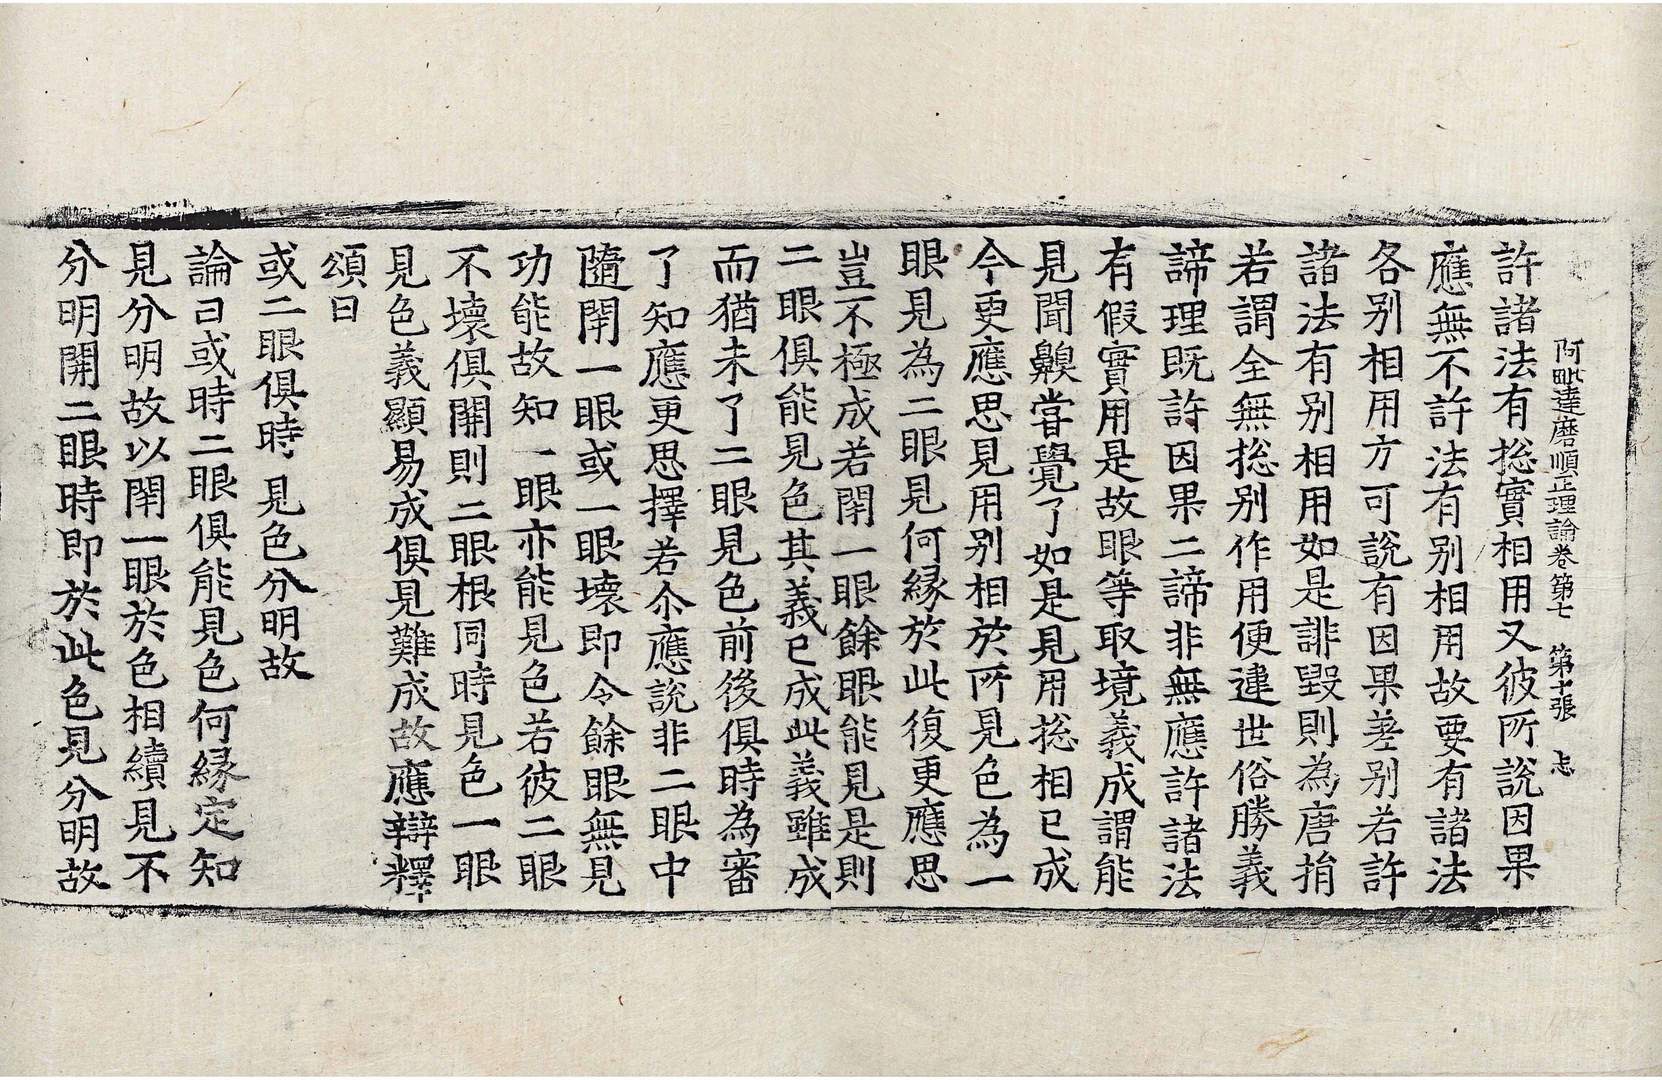 阿毗達磨順正理論卷第七 第十張 忐
許諸法有捴實相用又彼所說因果
應無不許法有別相用故要有諸法
各別相用方可說有因果差別若許
諸法有別相用如是誹毀則為唐捐
若謂全無捴別作用便違世俗勝義
諦理既許因果二諦非無應許諸法
有假實用是故眼等取境義成謂能
見聞齅甞覺了如是見用捴相已成
今更應思見用別相於所見色為一
眼見為二眼見何緣於此復更應思
豈不極成若閇一眼餘眼能見是則
二眼俱能見色其義已成此義雖成
而猶未了二眼見色前後俱時為審
了知應更思擇若尒應說非二眼中
隨閇一眼或一眼壞即令餘眼無見
功能故知一眼亦能見色若彼二眼
不壞俱開則二眼根同時見色一眼
見色義顯易成俱見難成故應辯釋
頌曰
或二眼俱時 見色分明故
論曰或時二眼俱能見色何緣定知
見分明故以閇一眼於色相續見不
分明開二眼時即於此色見分明故